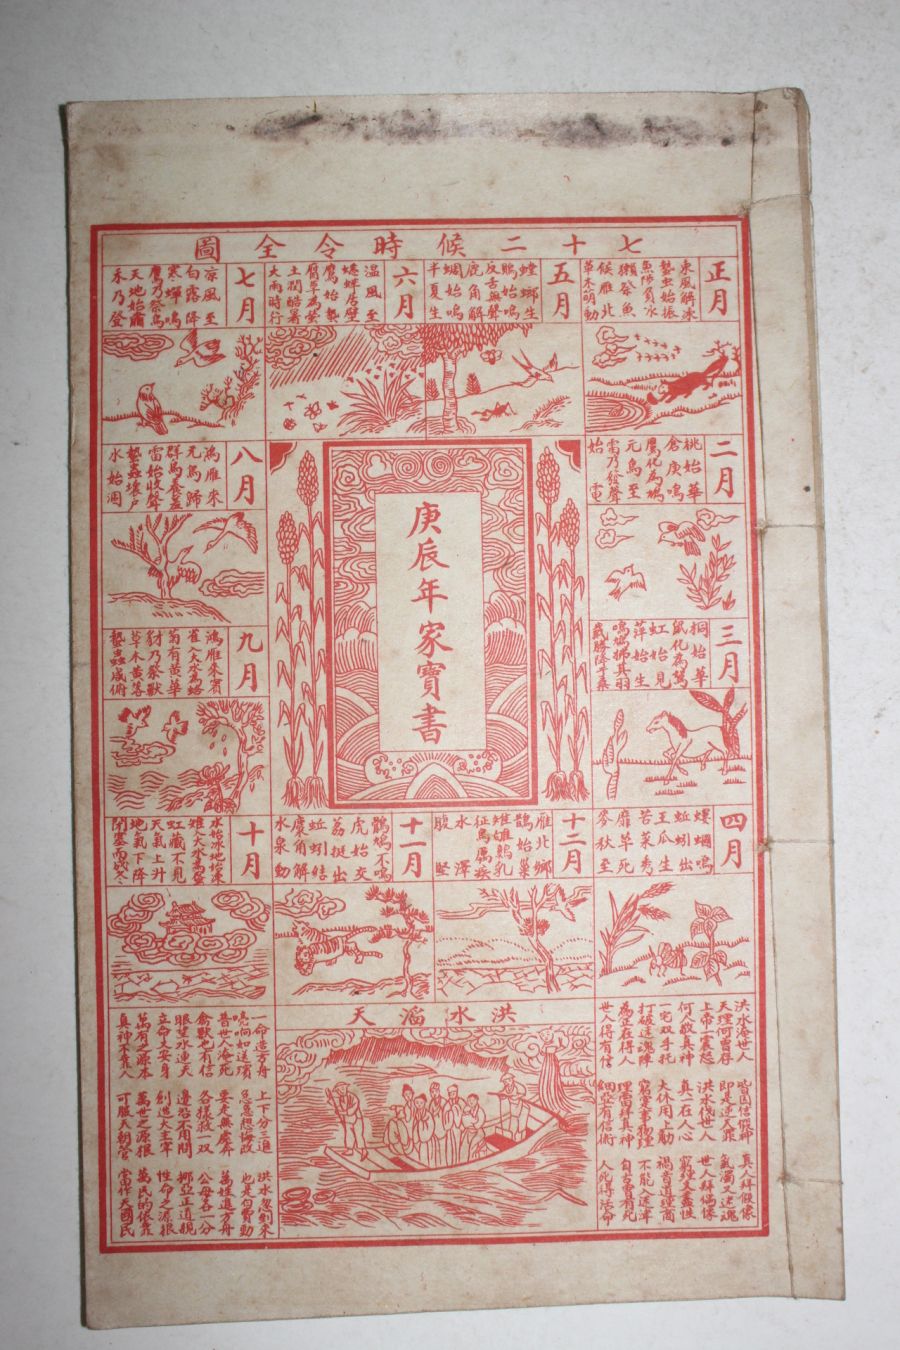 七十二候時令全圖
正月
東風解凍
蟄虫始振
魚陟負冰
獺祭魚
候雁北
草木萌動
二月
桃始華
倉庚鳴
鷹化為鳩
元鳥至
雷乃發聲
始電
三月
桐始華
鼠化為鴽
虹始見
萍始生
鳴鳩拂其羽
四月
螻蟈鳴
蚯蚓出
王瓜生
苦菜秀
靡草死
麥秋至
五月
螳螂生
鵙始鳴
反舌無聲
鹿角解
蜩始鳴
半夏生
六月
温風至
蟋蟀居壁
鷹始摯
腐草為螢
土潤酷暑
大雨時行
七月
凉風至
白露降
寒蟬鳴
鷹乃祭鳥
天地始肅
禾乃登
八月
鴻雁來
元鳥歸
群鳥養羞
雷始收聲
蟄蟲壞戶
水始涸
九月
鴻雁來賓
雀入大水為蛤
菊有黃華
豺乃祭獸
草木黃落
蟄蟲咸俯
十月
水始冰地始凍
雉入大水為蜃
虹藏不見
天氣上升
地氣下降
閉塞而成冬
十一月
鶡鴠不鳴
虎始交
荔挺出
蚯蚓結
麋角解
水泉動
十二月
雁北鄉
鵲始巢
雉雊雞乳
征鳥厲疾
水澤
腹堅
庚辰年家寶書
洪水滔天
洪水淹世人
皆因信假神
真人拜假像
天理何曾存
即是逆天罪
氣濁又迷魂
上帝大震怒
洪水伐世人
世人拜偶像
何人敬真神
真一在人心
一宅双手托
大休用上勛
打破迷魂陣
為正在得人
世人得有信
人死得活命
一命造方舟
上下分三道
洪水忽到來
嘵喻如送項
急急想悔改
也是勾費勤
昔世人淹死
要走無處奔
萬姓進方舟
禽獸也有信
各樣救一双
公母各一分
眼望水連天
邊岩不用問
挪亞正道規
立命是安身
創造大主宰
性命之源根
萬有之源本
萬世之源根
萬民的依靠
真神不靠人
可服天朝管
當作大國民